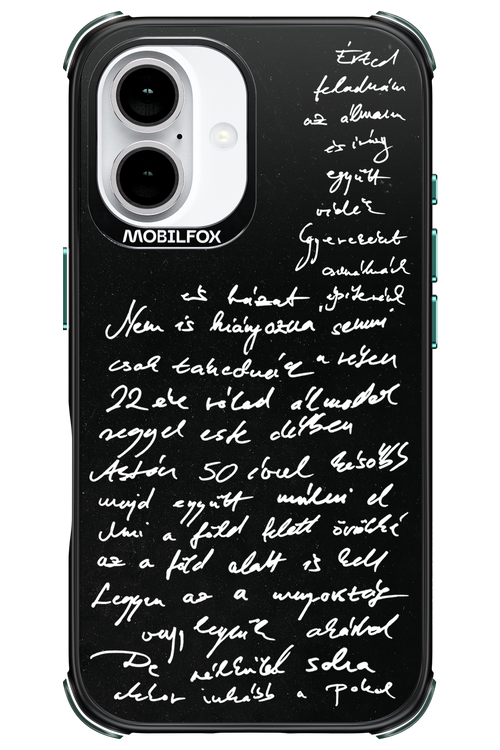 MOBILFOX
Érted
feladnám
az álmaim
és irány
együtt
vidék
Gyerekeket
csinálnánk
és házat építenénk
Nem is hiányozna semmi
csak tehednénk a réten
22 éve rólad álmodok
reggel este délben
Aztán 50 évvel később
majd együtt múlni el
Ami a föld felett örökké
az a föld alatt is kell
Legyen az a mennyország
vagy legyünk akárhol
De nélküled soha
akkor inkább a Pokol